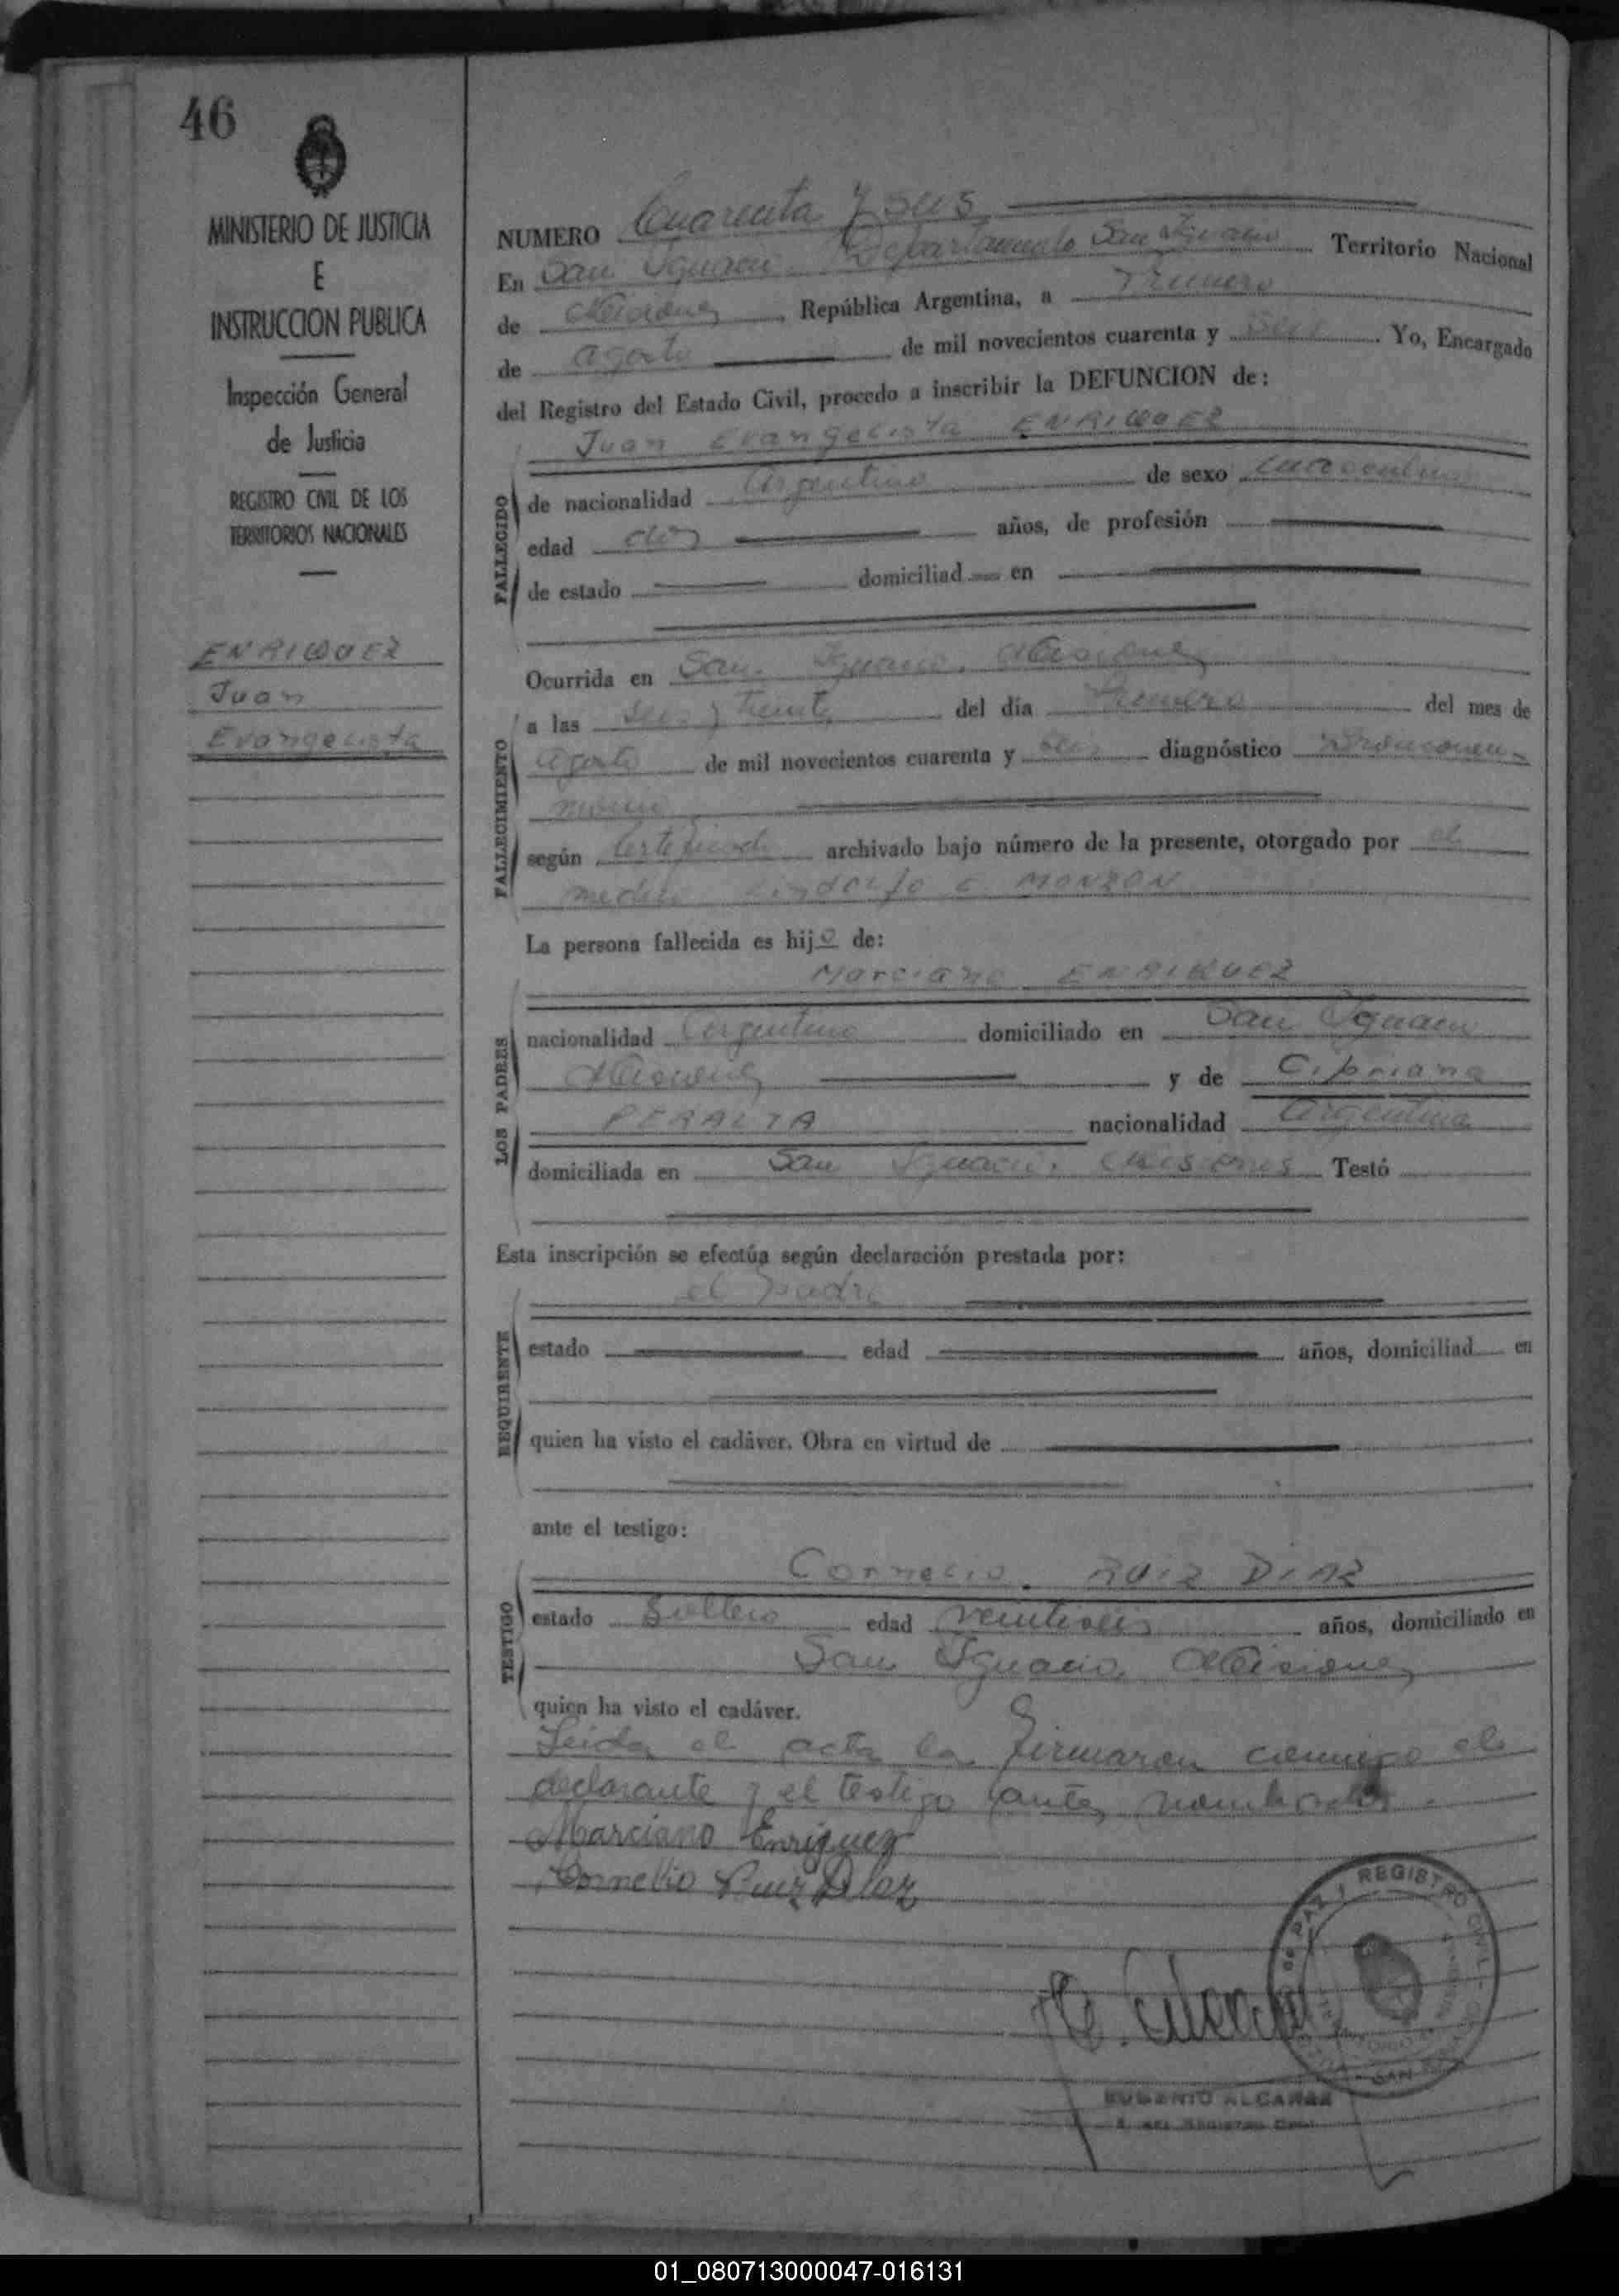 46
MINISTERIO DE JUSTICIA
E
INSTRUCCION PUBLICA
Inspección General
de Justicia
REGISTRO CIVIL DE LOS
TERRITORIOS NACIONALES
ENRIQUEZ
Juan
Evangelista
NUMERO Cuarenta y seis
En San Ignacio Departamento San Ignacio Territorio Nacional
de Misiones, República Argentina, a Primero
de agosto de mil novecientos cuarenta y seis. Yo, Encargado
del Registro del Estado Civil, procedo a inscribir la DEFUNCION de:
Juan Evangelista ENRIQUEZ
FALLECIDO
de nacionalidad argentino de sexo masculino
edad dos años, de profesión
de estado domiciliad en
Ocurrida en San Ignacio, Misiones
FALLECIMIENTO
a las seis y treinta del día Primero del mes de
agosto de mil novecientos cuarenta y seis diagnóstico Bronconeu-
monia
según certificado archivado bajo número de la presente, otorgado por el
medico Lindolfo C. MONZON
La persona fallecida es hijo de:
Marciano ENRIQUEZ
LOS PADRES
nacionalidad argentino domiciliado en San Ignacio
Misiones y de Cipriana
PERALTA nacionalidad argentina
domiciliada en San Ignacio, Misiones Testó
Esta inscripción se efectúa según declaración prestada por:
el padre
REQUIRENTE
estado edad años, domiciliad en
quien ha visto el cadáver. Obra en virtud de
ante el testigo:
Cornelio RUIZ DIAZ
TESTIGO
estado soltero edad veintiseis años, domiciliado en
San Ignacio, Misiones
quien ha visto el cadáver.
Leida el acta la firmaron conmigo el
declarante y el testigo antes nombrados.
Marciano Enriquez
Cornelio Ruiz Diaz
DE PAZ Y REGISTRO CIVIL
SAN
EUGENIO ALCARAZ
E. DEL REGISTRO CIVIL
01_080713000047-016131